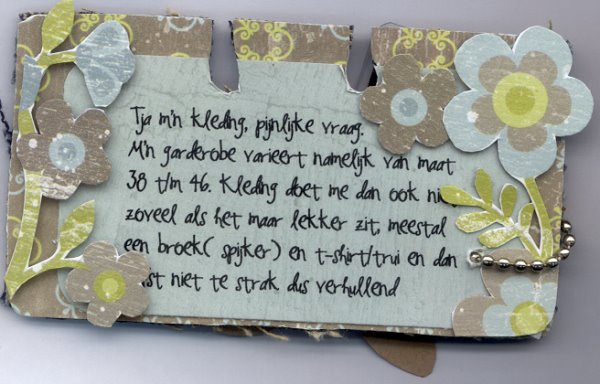 Tja m'n kleding, pijnlijke vraag.
M'n garderobe varieert namelijk van maat
38 t/m 46. Kleding doet me dan ook ni
zoveel als het maar lekker zit, meestal
een broek( spijker) en t-shirt/trui en dan
st niet te strak dus verhullend